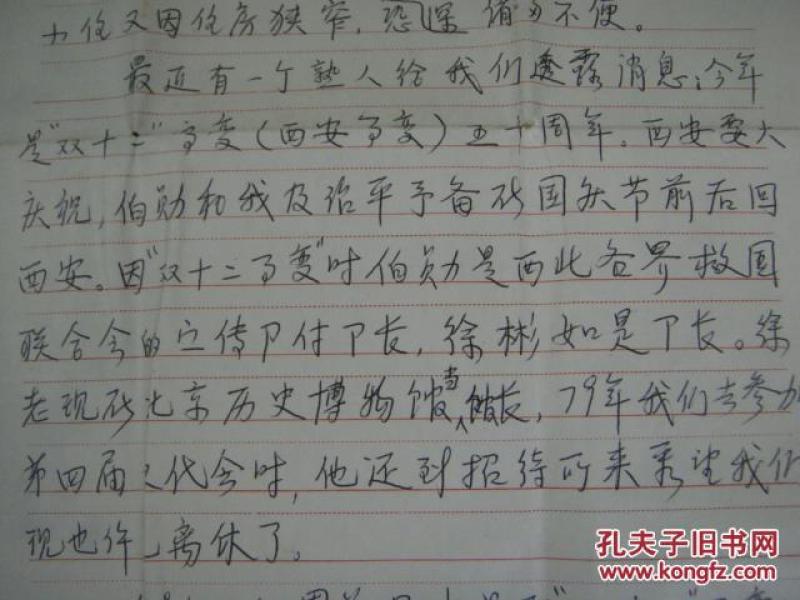 又因住房狭窄,恐 不便。
最近有一个熟人给我们透露消息,今年
是"双十二"事变(西安事变)五十周年。西安要大
庆祝,伯勋和我及治平予备在国庆节前后回
西安。因"双十二事变"时伯勋是西北各界救国
联合会的宣传卩付卩长,徐彬如是卩长。徐
老现在北京历史博物馆当馆长,79年我们去参加
第四届文代会时,他还到招待所来看望我们
现也许离休了。
孔夫子旧书网
www.kongfz.com